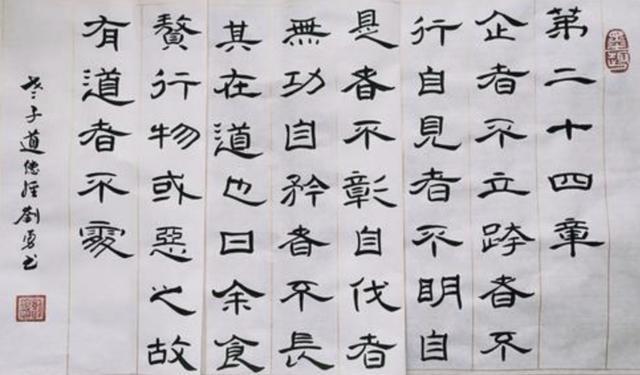 第二十四章
企者不立跨者不
行自見者不明自
是者不彰自伐者
無功自矜者不長
其在道也曰余食
贅行物或惡之故
有道者不處
老子道德經劉勇书